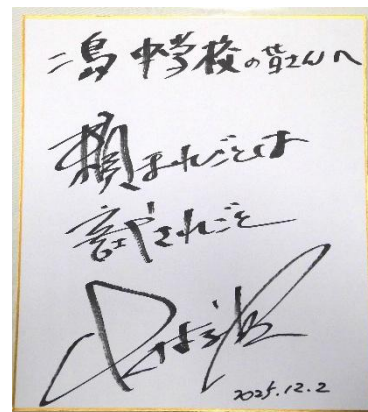 二島中学校の皆さんへ
頼まれごとは
試されごと
2025.12.2